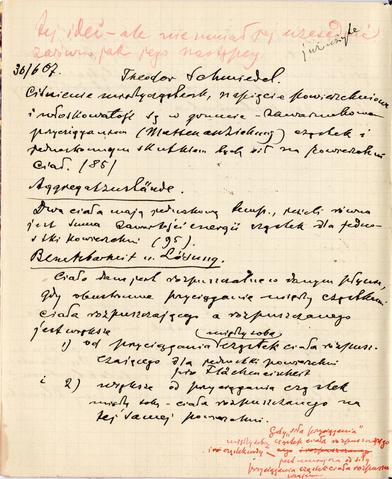 tej idei - ale nie umiał jej uzasadnić
zarówno jak jego następcy
już użyte
30/6 07.
Theodor Schmiedel.
Ciśnienie międzycząsteczk., napięcie powierzchniowe
i włoskowatość są w gruncie uwarunkowane
przyciąganiem (Massenanziehung) cząstek i
jednakowym skutkiem będą sił na powierzchni
ciał. (85)
Aggregatzustände.
Dwa ciała mają jednakową temp., jeżeli równa
jest suma zawartości energii cząstek dla jedno-
stki powierzchni (95).
Benetzbarkeit u. Lösung.
Ciało dane jest rozpuszczalne w danym płynie,
gdy obustronne przyciąganie między cząstkami
ciała rozpuszczającego a rozpuszczanego
jest większe
(między sobą)
1) od przyciągania cząstek ciała rozpusz-
czającego dla jednostki powierzchni
pro Flächeneinheit
i 2) większe od przyciągania cząstek
między sobą - ciała rozpuszczanego na
tej samej powierzchni.
Gdy „siła przyciągania”
między sobą cząstek ciała rozpuszczającego
jest mniejsza od siły
przyciągania cząstek ciała rozpuszcz